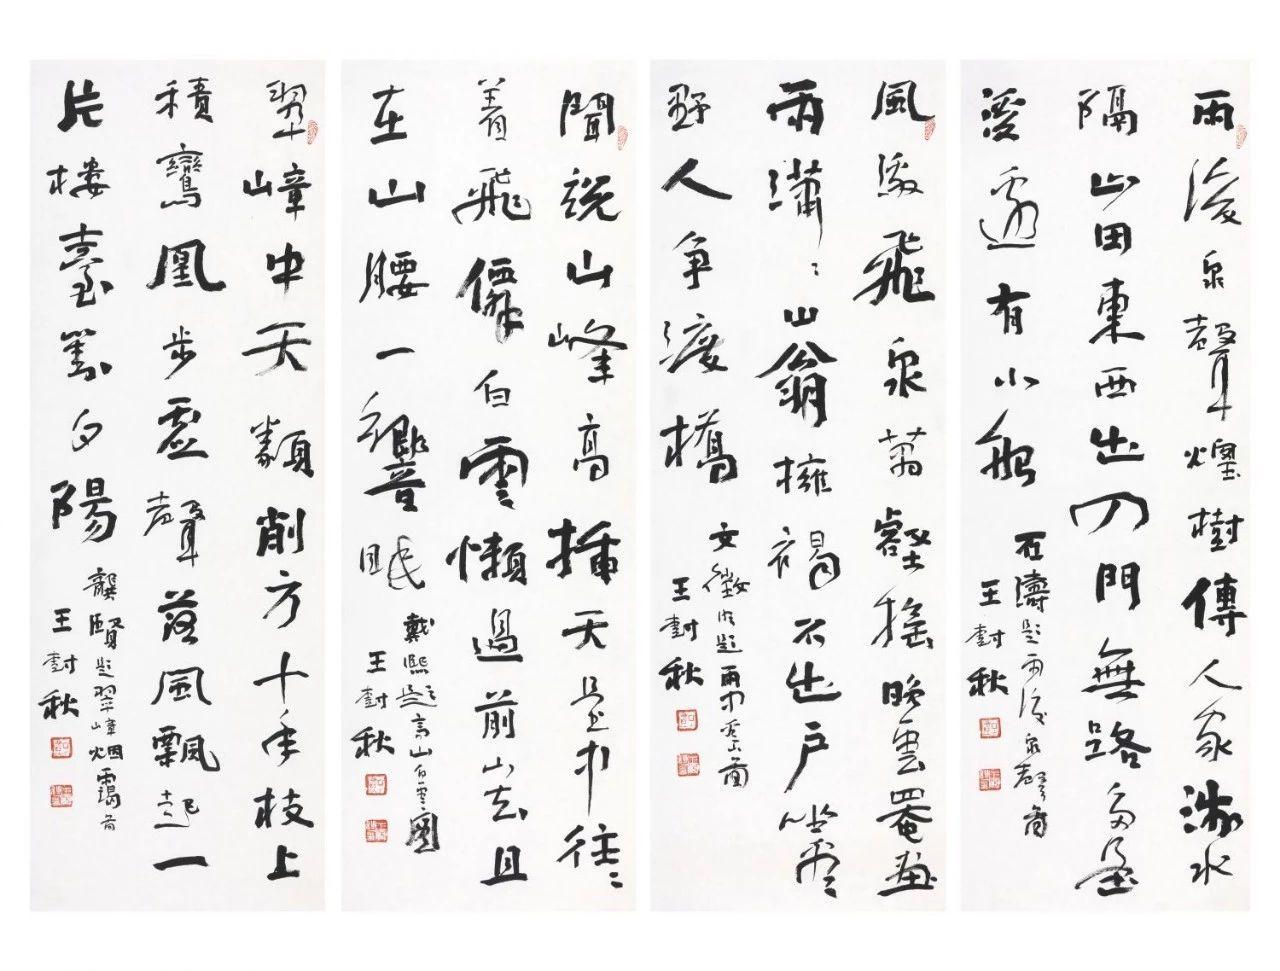 雨後泉聲煙樹傳人家流水
隔山田東西出入門無路多是
溪邊有小船
石濤題雨後泉聲圖
王封秋
風激飛泉萬壑搖晚雲罨畫
雨瀟〻山翁擁褐不出戶坐看
野人爭渡橋
文徵明題雨中看山圖
王封秋
聞說山峰高插天是中往〻
著飛僊白雲懶過前山去且
在山腰一響眠
戴熙題高山白雲圖
王封秋
翠嶂中天類削方十年枝上
積鸞凰步虛聲落風飄起一
片樓臺對夕陽
龔賢題翠嶂烟靄圖
王封秋